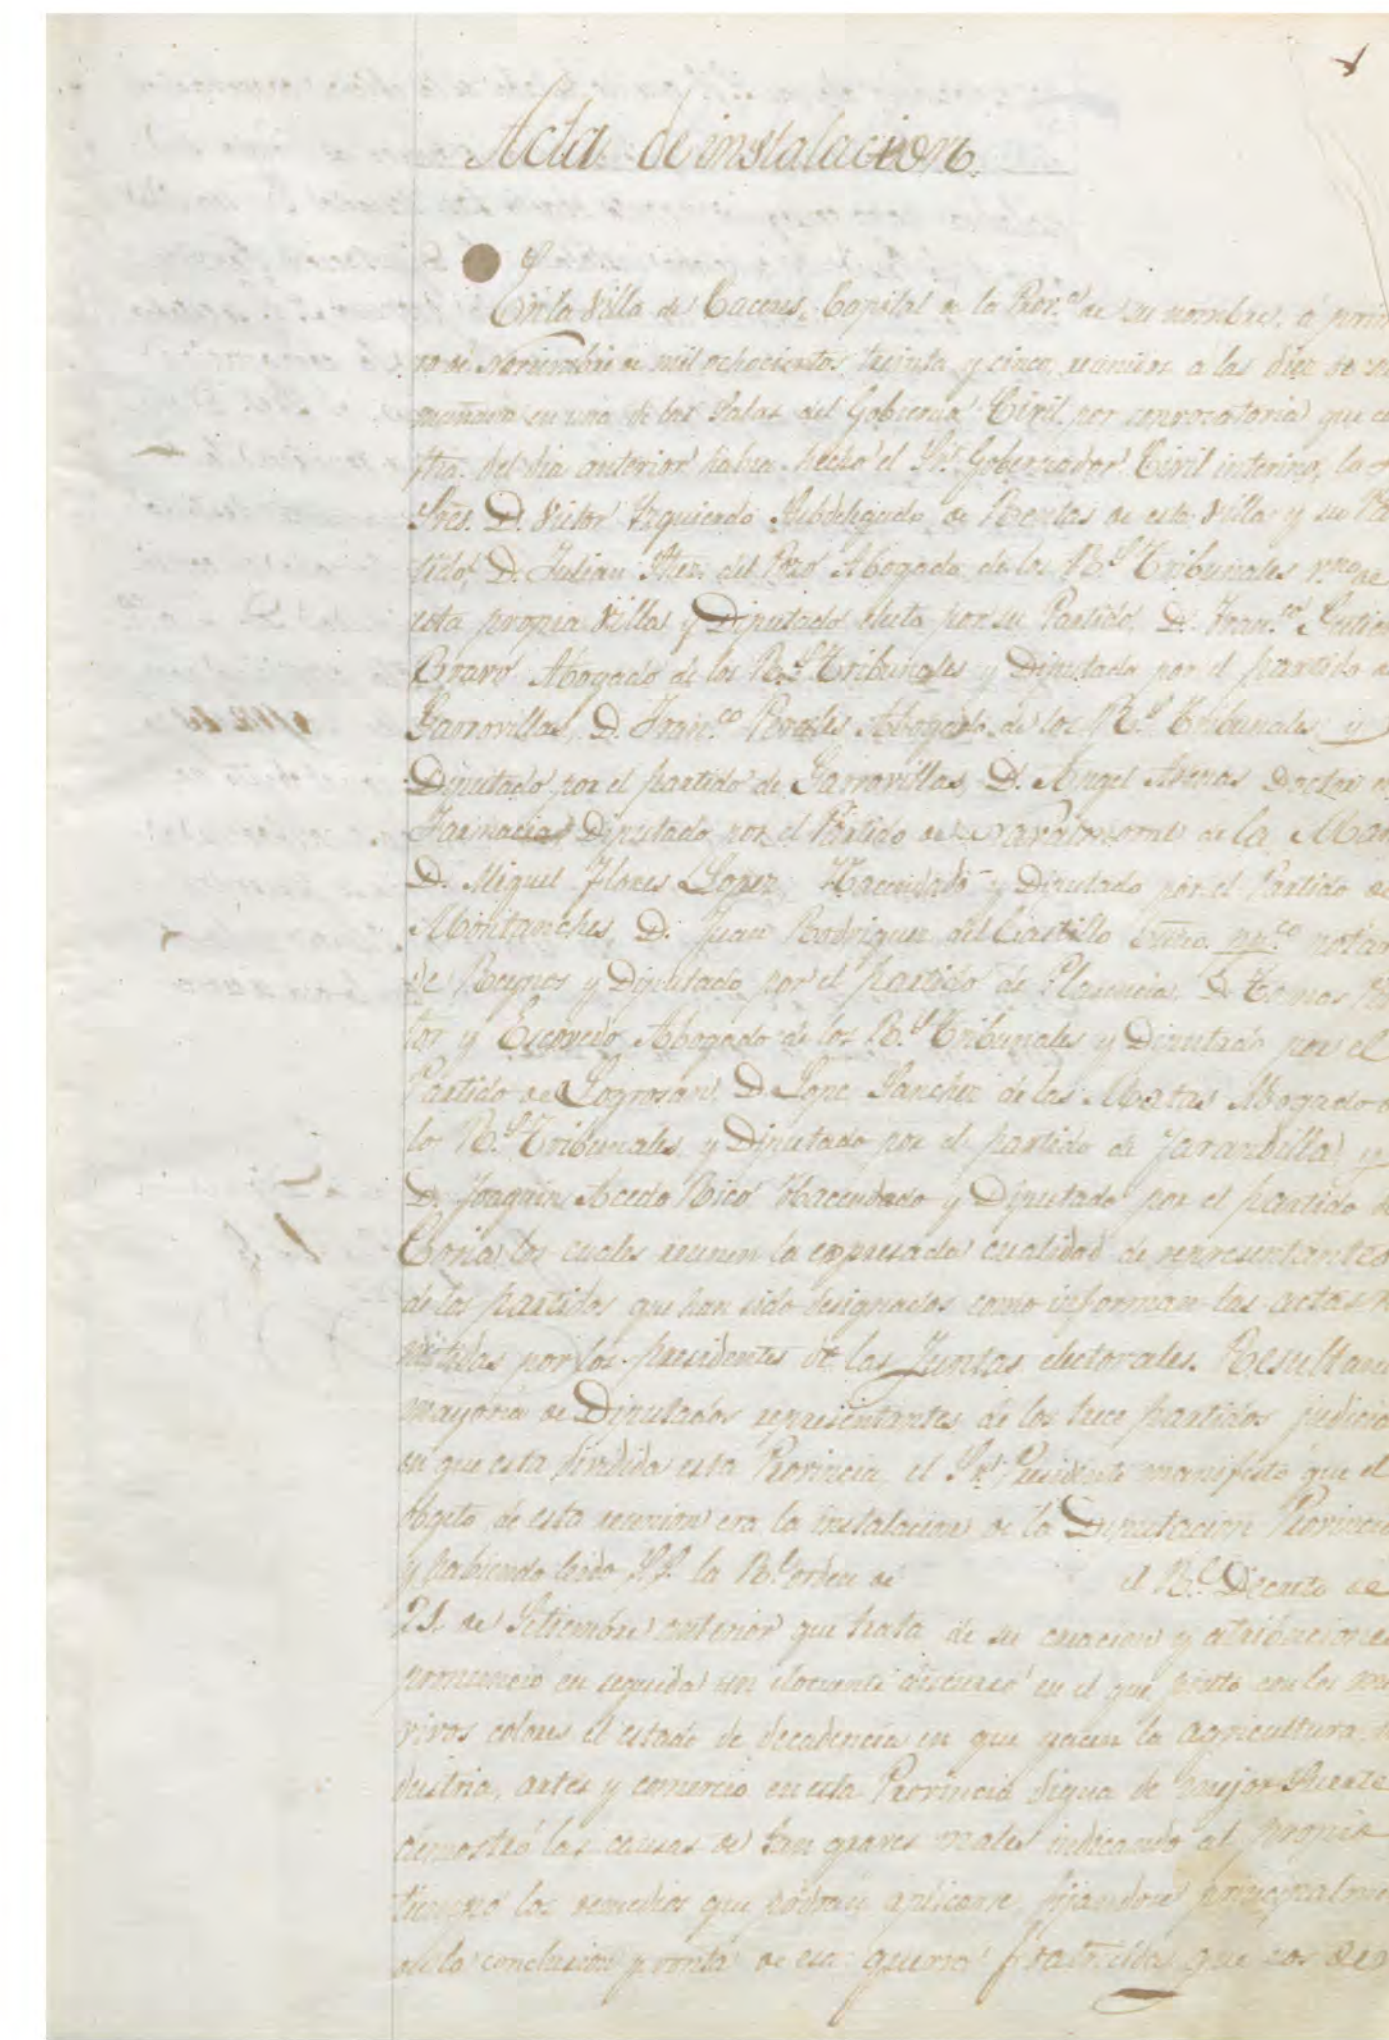 Acta de instalacion.
En la Villa de Caceres, Capital de la Prov.ª de su nombre, á prim
ro de Noviembre de mil ochocientos treinta y cinco, reunidos a las diez de su
mañana en una de las Salas del Gobierno Civil por convocatoria que co
fha. del dia anterior habia hecho el Sr. Gobernador Civil interino, los
Sres. D. Victor Izquierdo Subdelegado de Rentas de esta Villa y su Pa
tido, D. Julian del Pozo Abogado de los R.s Tribunales de
esta propia Villa y Diputado electo por su Partido, D. Fran.co
Bravo Abogado de los R.s Tribunales y Diputado por el partido de
Garrovillas, D. Fran.co Perales Abogado de los R.s Tribunales y
Diputado por el partido de Garrovillas, D. Angel Arenas Doctor e
Farmacia Diputado por el Partido de Navalmoral de la Mat
D. Miguel Flores Lopez, Hacendado y Diputado por el Partido de
Montanches, D. Juan Rodriguez del Castillo notar
de Reynos y Diputado por el partido de Plasencia, D. Tomas Pa
tor y Escovedo Abogado de los R.s Tribunales y Diputado por el
Partido de Logrosan, D. Lope Sanchez de las Matas Abogado d
lo R.s Tribunales y Diputado por el partido de Jarandilla y
D. Joaquin Acedo Rico Hacendado y Diputado por el partido d
Coria los cuales reunen la expresada cualidad de representantes
de los partidos que han sido designados como informan las actas re
mitidas por los presidentes de las Juntas electorales. Resultando
mayoria de Diputados representantes de los trece partidos judicia
en que esta dividida esta Provincia, el Sr. Presidente manifestó que el
obgeto de esta reunion era la instalacion de la Diputacion Provincia
y habiendo leido S.S. la R.l orden de el R.l Decreto de
21 de Setiembre anterior que trata de su creacion y atribuciones
pronunció en seguida un elocuente discurso en el que pintó con los ma
vivos colores el estado de decadencia en que yacen la agricultura, i
dustria, artes y comercio en esta Provincia digna de mejor Suerte
demostró las causas de tan graves males indicando al propio
tiempo los remedios que podrian aplicarse fijandose principalme
en la conclusion pronta de esa guerra fratricida que nos de